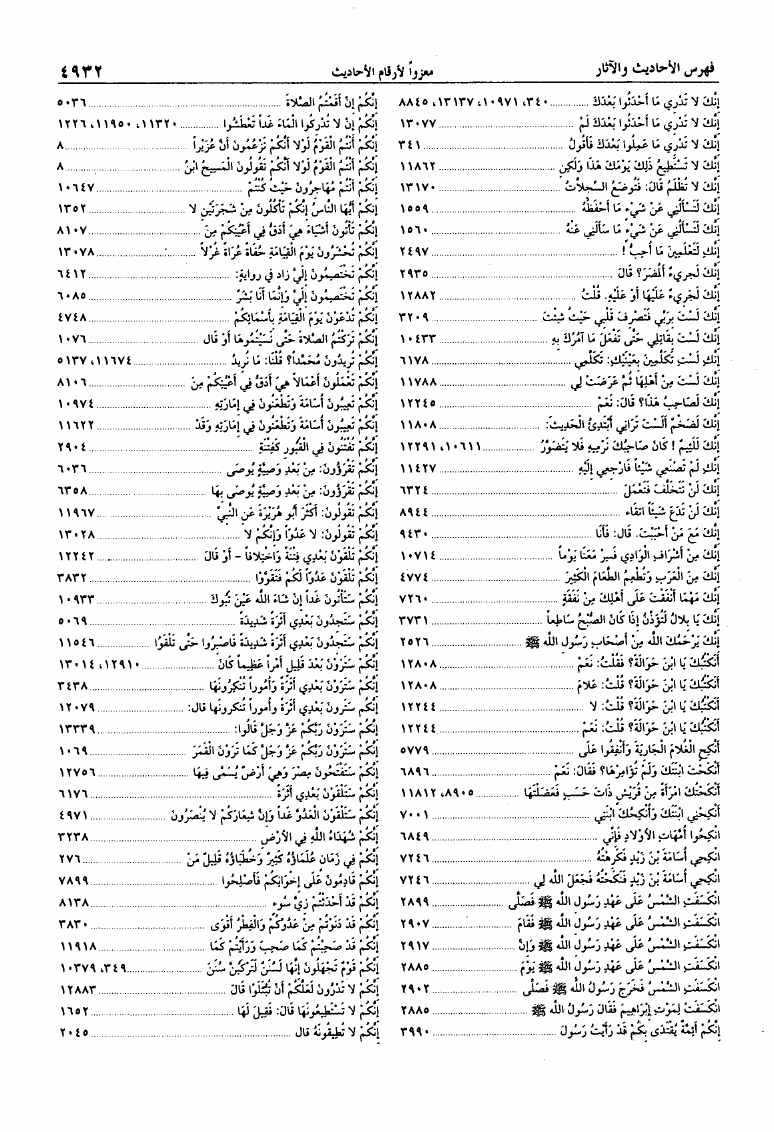 فهرس الأحاديث والآثار معزواً لأرقام الأحاديث ٤٩٣٢
إنَّكَ لا تَدْرِي مَا أَحْدَثُوا بَعْدَكَ ..... ٣٤٠، ١٠٩٧١، ١٣١٣٧، ٨٨٤٥
إنَّكَ لا تَدْرِي مَا أَحْدَثُوا بَعْدَكَ لَمْ ..... ١٣٠٧٧
إنَّكَ لا تَدْرِي مَا عَمِلُوا بَعْدَكَ فَأَقُولُ ..... ٣٤١
إنَّكَ لا تَسْتَطِيعُ ذَلِكَ يَوْمَكَ هَذَا وَلَكِنِ ..... ١١٨٦٢
إنَّكَ لا تُظْلَمُ قَالَ: فَتُوضَعُ السِّجِلاَّتُ ..... ١٣١٧٠
إنَّكَ لَتَسْأَلُنِي عَنْ شَيْءٍ مَا أَحْفَظُهُ ..... ١٥٥٩
إنَّكَ لَتَسْأَلُنِي عَنْ شَيْءٍ مَا سَأَلَنِي عَنْهُ ..... ١٥٦٠
إنَّكَ لَتَعْلَمِينَ مَا أُحِبُّ! ..... ٢٤٩٧
إنَّكَ لَجَرِيءٌ أَلْمُضَرَ؟ قَالَ ..... ٢٩٣٥
إنَّكَ لَجَرِيءٌ عَلَيْهَا أَوْ عَلَيْهِ. قُلْتُ ..... ١٢٨٨٢
إنَّكَ لَسْتَ بِرَبِّي فَتَصْرِفَ قَلْبِي حَيْثُ شِئْتَ ..... ٣٢٠٩
إنَّكَ لَسْتَ بِقَاتِلِي حَتَّى تَفْعَلَ مَا آمُرُكَ بِهِ ..... ١٠٤٣٣
إنَّكِ لَسْتِ تُكَلِّمِينَ بِعَيْنَيْكِ: تَكَلَّمِي ..... ٦١٧٨
إنَّكَ لَسْتَ مِنْ أَهْلِهَا ثُمَّ عَرَضَتْ لِي ..... ١١٧٨٨
إنَّكَ لَصَاحِبُ هَذَا؟ قَالَ: نَعَمْ ..... ١٢٢٤٥
إنَّكَ لَضَخْمٌ أَلَسْتَ تَرَانِي أَبْتَدِئُ الْحَدِيثَ: ..... ١١٨٠٨
إنَّكَ لَلَئِيمٌ! كَانَ صَاحِبُكَ نَرْمِيهِ فَلا يَتَضَوَّرُ ..... ١٠٦١١، ١٢٢٩١
إنَّكِ لَمْ تَصْنَعِي شَيْئاً فَارْجِعِي إِلَيْهِ ..... ١١٤٢٧
إنَّكَ لَنْ تَتَخَلَّفَ فَتَعْمَلَ ..... ٦٣٢٤
إنَّكَ لَنْ تَدَعَ شَيْئاً اتقاء ..... ٨٩٤٤
إنَّكَ مَعَ مَنْ أَحْبَبْتَ. قَالَ: فَأَنَا ..... ٩٤٣٠
إنَّكَ مِنْ أَشْرَافِ الْوَادِي فَسِرْ مَعَنَا يَوْماً ..... ١٠٧١٤
إنَّكَ مِنَ الْعَرَبِ وَتُطْعِمُ الطَّعَامَ الْكَثِيرَ ..... ٤٧٧٤
إنَّكَ مَهْمَا أَنْفَقْتَ عَلَى أَهْلِكَ مِنْ نَفَقَةٍ ..... ٧٢٦٠
إنَّكَ يَا بِلالُ لَتُؤَذِّنُ إِذَا كَانَ الصُّبْحُ سَاطِعاً ..... ٣٧٣١
إنَّكَ يَرْحَمُكَ اللَّه مِنْ أَصْحَابِ رَسُولِ اللَّه ﷺ ..... ٢٥٢٦
أَنَكْتُبُكَ يَا ابْنَ حَوَالَةَ؟ فَقُلْتُ: نَعَمْ ..... ١٢٨٠٨
أَنَكْتُبُكَ يَا ابْنَ حَوَالَةَ؟ قُلْتُ: عَلامَ ..... ١٢٨٠٨
أَنَكْتُبُكَ يَا ابْنَ حَوَالَةَ؟ قُلْتُ: لا ..... ١٢٢٤٤
أَنَكْتُبُكَ يَا ابْنَ حَوَالَةَ؟ قُلْتُ: نَعَمْ ..... ١٢٢٤٤
أَنْكِحِ الْغُلامَ الْجَارِيَةَ وَأَنْفِقُوا عَلَى ..... ٥٧٧٩
أَنْكَحْتَ ابْنَتَكَ وَلَمْ تُؤَامِرْهَا؟ فَقَالَ: نَعَمْ ..... ٦٨٩٦
أَنْكَحْتُكَ امْرَأَةً مِنْ قُرَيْشٍ ذَاتَ حَسَبٍ فَعَضَلْتَهَا ..... ٨٩٠٥، ١١٨١٢
أَنْكِحْنِي ابْنَتَكَ وَأُنْكِحُكَ ابْنَتِي ..... ٧٠٠١
انْكِحُوا أُمَّهَاتِ الأَوْلادِ فَإِنِّي ..... ٦٨٤٩
انْكِحِي أُسَامَةَ بْنَ زَيْدٍ فَكَرِهَتْهُ ..... ٧٢٤٦
انْكِحِي أُسَامَةَ بْنَ زَيْدٍ فَنَكَحْتُهُ فَجَعَلَ اللَّه لِي ..... ٧٢٤٦
انْكَسَفَتِ الشَّمْسُ عَلَى عَهْدِ رَسُولِ اللَّه ﷺ فَصَلَّى ..... ٢٨٩٩
انْكَسَفَتِ الشَّمْسُ عَلَى عَهْدِ رَسُولِ اللَّه ﷺ فَقَامَ ..... ٢٩٠٧
انْكَسَفَتِ الشَّمْسُ عَلَى عَهْدِ رَسُولِ اللَّه ﷺ وَإِنَّ ..... ٢٩١٧
انْكَسَفَتِ الشَّمْسُ عَلَى عَهْدِ رَسُولِ اللَّه ﷺ يَوْمَ ..... ٢٨٨٥
انْكَسَفَتِ الشَّمْسُ فَخَرَجَ رَسُولُ اللَّه ﷺ فَصَلَّى ..... ٢٩٠٢
انْكَسَفَتْ لِمَوْتِ إِبْرَاهِيمَ فَقَالَ رَسُولُ اللَّه ﷺ ..... ٢٨٨٥
إِنَّكُمْ أَئِمَّةٌ يُقْتَدَى بِكُمْ قَدْ رَأَيْتُ رَسُولَ ..... ٣٩٩٠
إِنَّكُمْ إِنْ أَقَمْتُمُ الصَّلاةَ ..... ٥٠٣٦
إِنَّكُمْ إِنْ لا تُدْرِكُوا الْمَاءَ غَداً تَعْطَشُوا ..... ١١٣٢٠، ١١٩٥٠، ١٢٢٦
إِنَّكُمْ أَنْتُمُ الْقَوْمُ لَوْلا أَنَّكُمْ تَزْعُمُونَ أَنَّ عُزَيْراً ..... ٨
إِنَّكُمْ أَنْتُمُ الْقَوْمُ لَوْلا أَنَّكُمْ تَقُولُونَ الْمَسِيحُ ابْنُ ..... ٨
إِنَّكُمْ أَنْتُمْ مُهَاجِرُونَ حَيْثُ كُنْتُمْ ..... ١٠٦٤٧
إِنَّكُمْ أَيُّهَا النَّاسُ إِنَّكُمْ تَأْكُلُونَ مِنْ شَجَرَتَيْنِ لا ..... ١٣٥٢
إِنَّكُمْ تَأْتُونَ أَشْيَاءَ هِيَ أَدَقُّ فِي أَعْيُنِكُمْ مِنَ ..... ٨١٠٧
إِنَّكُمْ تُحْشَرُونَ يَوْمَ الْقِيَامَةِ حُفَاةً عُرَاةً غُرْلاً ..... ١٣٠٧٨
إِنَّكُمْ تَخْتَصِمُونَ إِلَيَّ زاد في روايةٍ: ..... ٦٤١٢
إِنَّكُمْ تَخْتَصِمُونَ إِلَيَّ وَإِنَّمَا أَنَا بَشَرٌ ..... ٦٠٨٥
إِنَّكُمْ تُدْعَوْنَ يَوْمَ الْقِيَامَةِ بِأَسْمَائِكُمْ ..... ٤٧٤٨
إِنَّكُمْ تَرَكْتُمُ الصَّلاةَ حَتَّى نَسِيتُمُوهَا أَوْ قَالَ ..... ١٠٧٦
إِنَّكُمْ تُرِيدُونَ مُحَمَّداً؟ قُلْنَا: مَا نُرِيدُ ..... ١١٦٧٤، ٥١٣٧
إِنَّكُمْ تَعْمَلُونَ أَعْمَالاً هِيَ أَدَقُّ فِي أَعْيُنِكُمْ مِنَ ..... ٨١٠٦
إِنَّكُمْ تَعِيبُونَ أُسَامَةَ وَتَطْعَنُونَ فِي إِمَارَتِهِ ..... ١٠٩٧٤
إِنَّكُمْ تَعِيبُونَ أُسَامَةَ وَتَطْعَنُونَ فِي إِمَارَتِهِ وَقَدْ ..... ١١٦٢٢
إِنَّكُمْ تُفْتَنُونَ فِي الْقُبُورِ كَفِتْنَةِ ..... ٢٩٠٤
إِنَّكُمْ تَقْرَؤُونَ: مِنْ بَعْدِ وَصِيَّةٍ يُوصَى ..... ٦٠٣٦
إِنَّكُمْ تَقْرَؤُونَ: مِنْ بَعْدِ وَصِيَّةٍ يُوصَى بِهَا ..... ٦٣٥٨
إِنَّكُمْ تَقُولُونَ: أَكْثَرَ أَبُو هُرَيْرَةَ عَنِ النَّبِيِّ ..... ١١٩٦٧
إِنَّكُمْ تَقُولُونَ: لا عَدُوَّ وَإِنَّكُمْ لا ..... ١٣٠٢٨
إِنَّكُمْ تَلْقَوْنَ بَعْدِي فِتْنَةً وَاخْتِلافاً - أَوْ قَالَ ..... ١٢٢٤٢
إِنَّكُمْ تَلْقَوْنَ عَدُوّاً لَكُمْ فَتَقَوَّوْا ..... ٣٨٣٢
إِنَّكُمْ سَتَأْتُونَ غَداً إِنْ شَاءَ اللَّه عَيْنَ تَبُوكَ ..... ١٠٩٣٣
إِنَّكُمْ سَتَجِدُونَ بَعْدِي أَثَرَةً شَدِيدَةً ..... ٥٠٦٩
إِنَّكُمْ سَتَجِدُونَ بَعْدِي أَثَرَةً شَدِيدَةً فَاصْبِرُوا حَتَّى تَلْقَوُا ..... ١١٥٤٦
إِنَّكُمْ سَتَرَوْنَ بَعْدَ قَلِيلٍ أَمْراً عَظِيماً كَانَ ..... ١٢٩١٠، ١٣٠١٤
إِنَّكُمْ سَتَرَوْنَ بَعْدِي أَثَرَةً وَأُمُوراً تُنْكِرُونَهَا ..... ٣٤٣٨
إِنَّكُمْ سَتَرونَ بَعْدِي أَثَرَةً وأُموراً تُنكرونَها قال: ..... ١٢٠٧٩
إِنَّكُمْ سَتَرَوْنَ رَبَّكُمْ عَزَّ وَجَلَّ قَالُوا: ..... ١٣٣٣٩
إِنَّكُمْ سَتَرَوْنَ رَبَّكُمْ عَزَّ وَجَلَّ كَمَا تَرَوْنَ الْقَمَرَ ..... ١٠٦٩
إِنَّكُمْ سَتَفْتَحُونَ مِصْرَ وَهِيَ أَرْضٌ يُسَمَّى فِيهَا ..... ١٢٧٥٦
إِنَّكُمْ سَتَلْقَوْنَ بَعْدِي أَثَرَةً ..... ٦١٧٦
إِنَّكُمْ سَتَلْقَوْنَ الْعَدُوَّ غَداً وَإِنَّ شِعَارَكُمْ لا يُنْصَرُونَ ..... ٤٩٧١
إِنَّكُمْ شُهَدَاءُ اللَّهِ فِي الأَرْضِ ..... ٣٢٣٨
إِنَّكُمْ فِي زَمَانٍ عُلَمَاؤُهُ كَثِيرٌ وَخُطَبَاؤُهُ قَلِيلٌ مَنْ ..... ٢٧٦
إِنَّكُمْ قَادِمُونَ عَلَى إِخْوَانِكُمْ فَأَصْلِحُوا ..... ٧٨٩٩
إِنَّكُمْ قَدْ أَحْدَثْتُمْ زِيَّ سُوءٍ ..... ٨١٣٨
إِنَّكُمْ قَدْ دَنَوْتُمْ مِنْ عَدُوِّكُمْ وَالْفِطْرُ أَقْوَى ..... ٣٨٣٠
إِنَّكُمْ قَدْ صَحِبْتُمْ كَمَا صَحِبَ وَرَأَيْتُمْ كَمَا ..... ١١٩١٨
إِنَّكُمْ قَوْمٌ تَجْهَلُونَ إِنَّهَا لَسُنَنٌ لَتَرْكَبُنَّ سُنَنَ ..... ٣٤٩، ١٠٣٧٩
إِنَّكُمْ لا تَدْرُونَ لَعَلَّكُمْ أَنْ تُبْتَلَوْا قَالَ ..... ١٢٨٨٣
إِنَّكُمْ لا تَسْتَطِيعُونَهَا قَالَ: فَقِيلَ لَهَا ..... ١٦٥٢
إِنَّكُمْ لا تُطِيقُونَهُ قَالَ ..... ٢٠٤٥